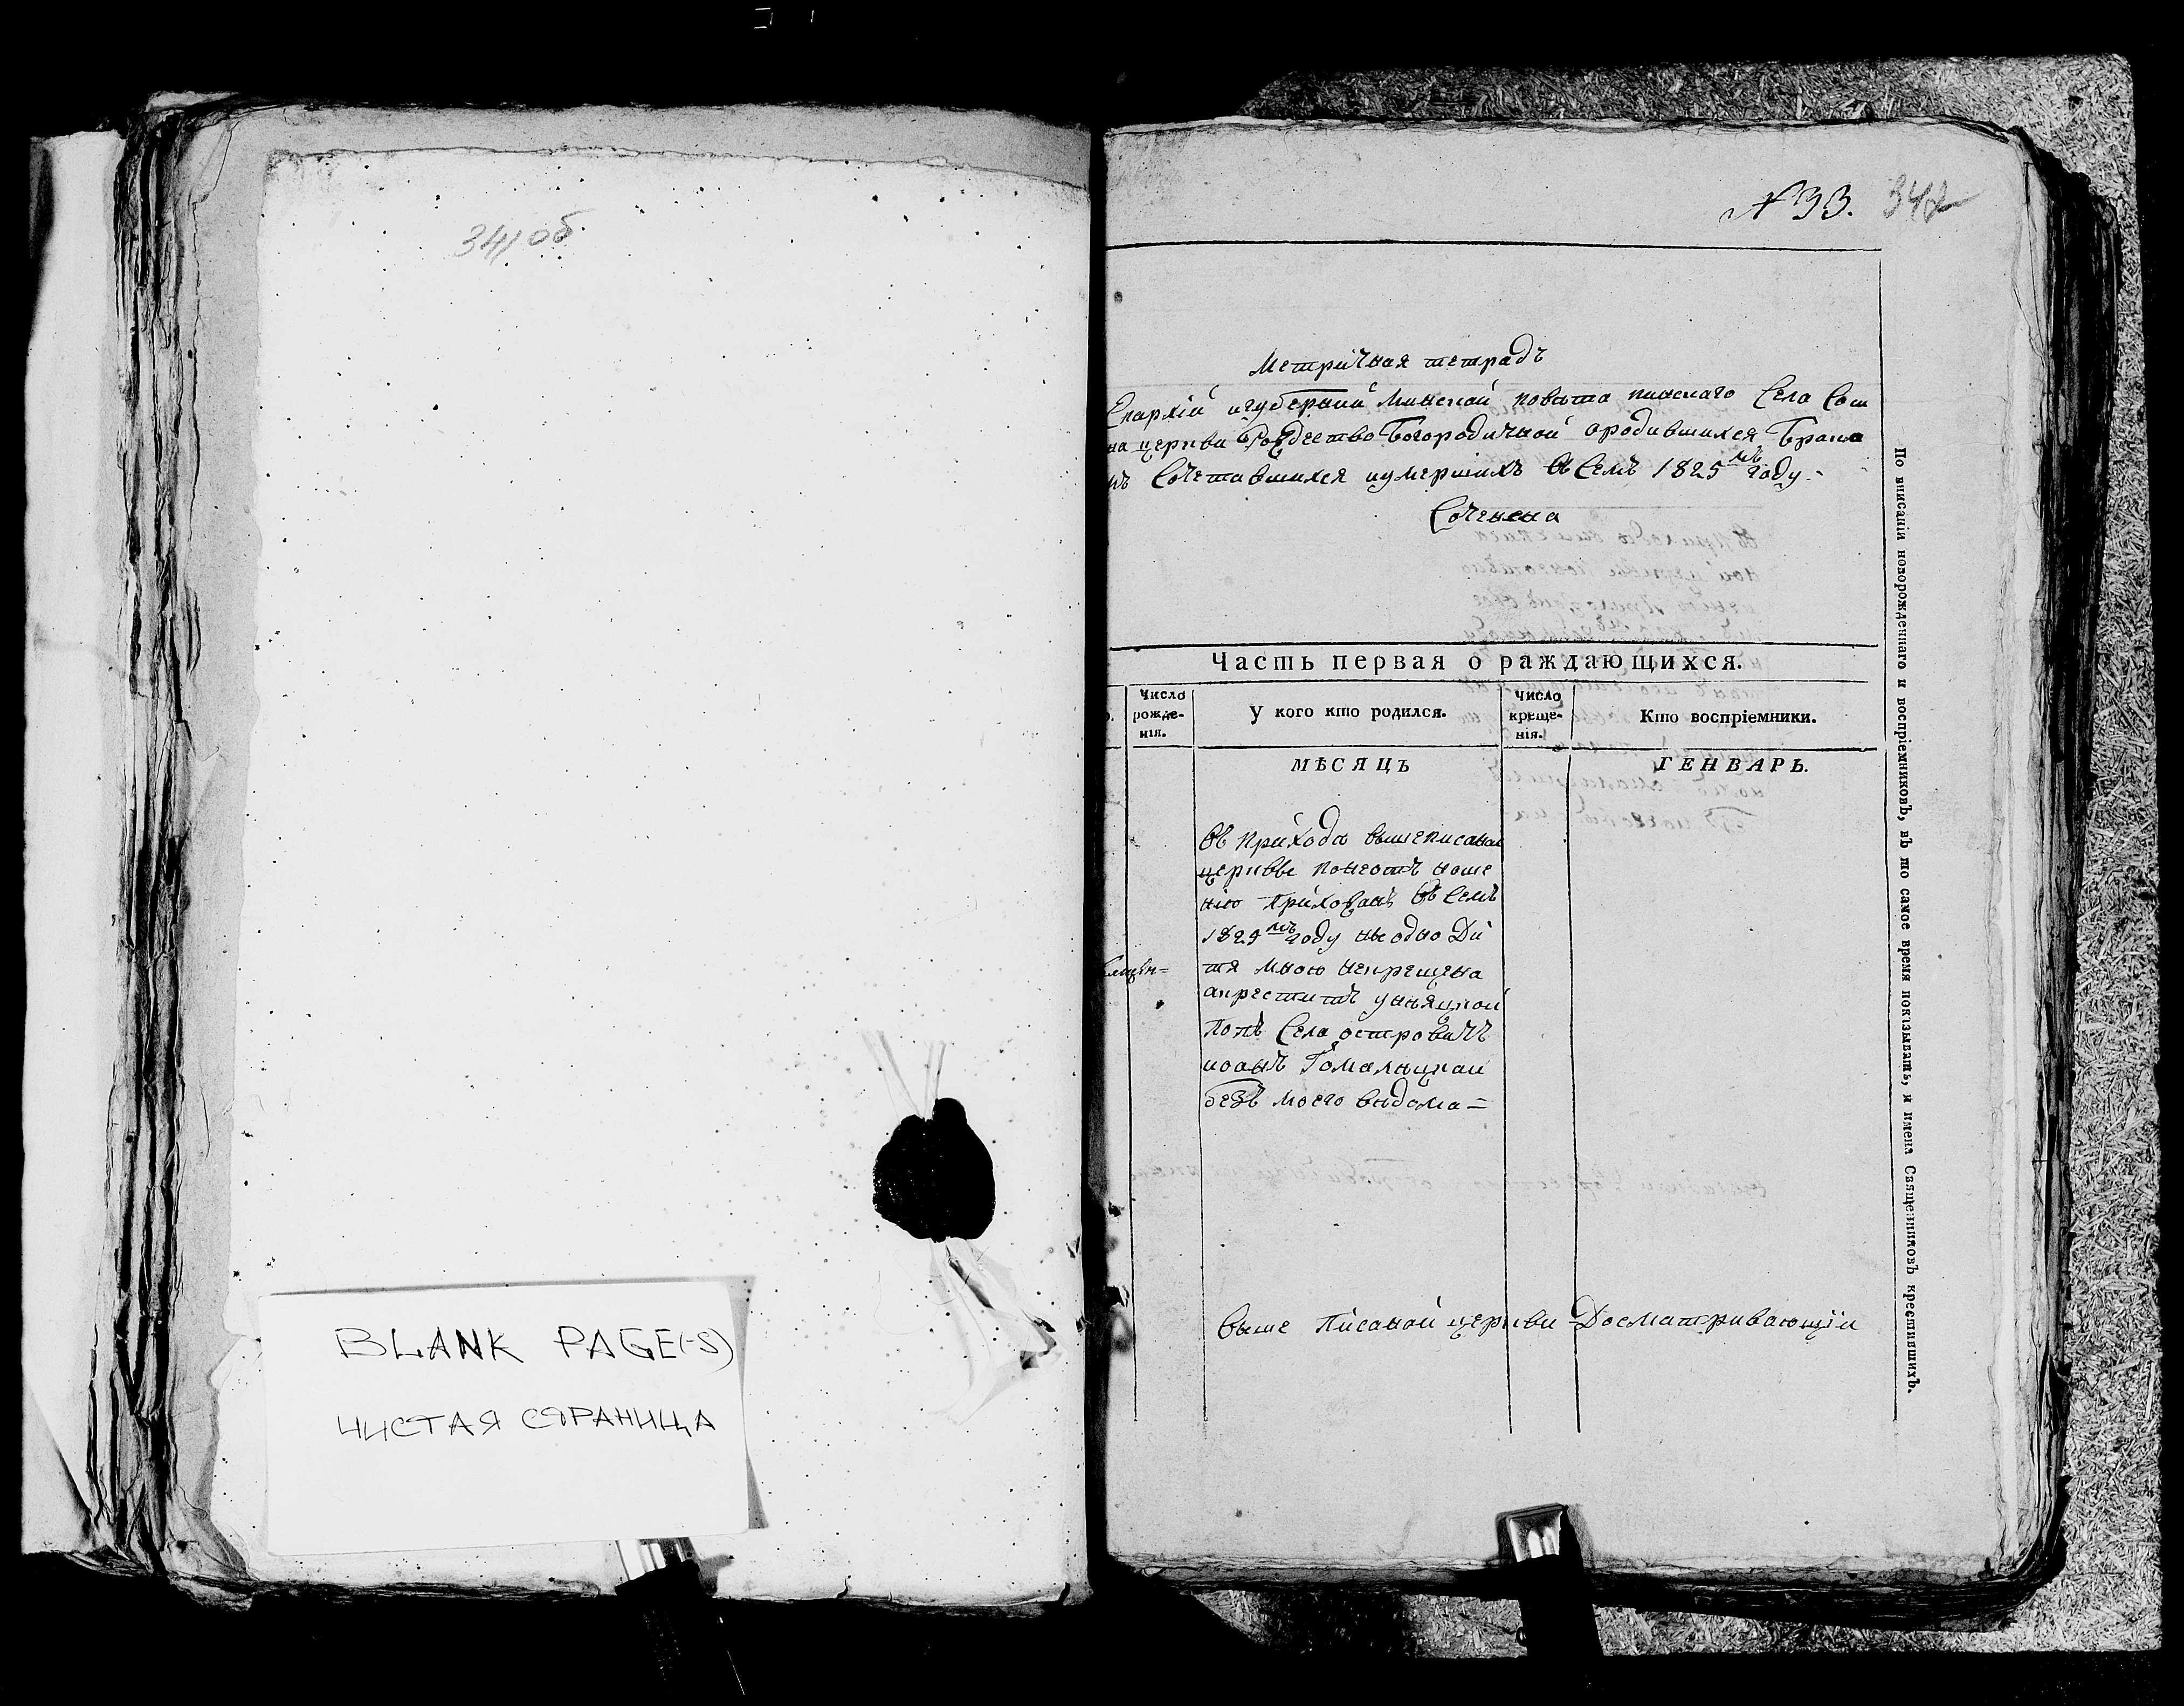 341 об.
BLANK PAGE(-S)
ЧИСТАЯ СТРАНИЦА
N 33. 342
Метричная тетрадь
Епархіи игуберніи Минской повѣта пинскаго Села Сош
на церкви Рождество Богородичной ородившихся Брако
мъ Сочетавшихся иумершихъ въ Семъ 1825 мъ году.
Сочинена
Часть первая о раждающихся.
Число рожденія.
У кого кто родился.
Число крещенія.
Кто воспріемники.
МѢСЯЦЪ ГЕНВАРЬ.
Въ приходѣ вышеписаной
церквѣ
нію прихожанъ въ Семъ
1825 мъ году не одно Ди
тя мною некрещена
акреститъ унѣяцкой
Попъ Села островичъ
иоанъ Гомалицкай
безъ моего вѣдома =
выше писаной церкви Досматривающій
По вписаніи новорожденнаго и воспріемниковъ, въ то самое время показывать, и имена Священниковъ крестившихъ.